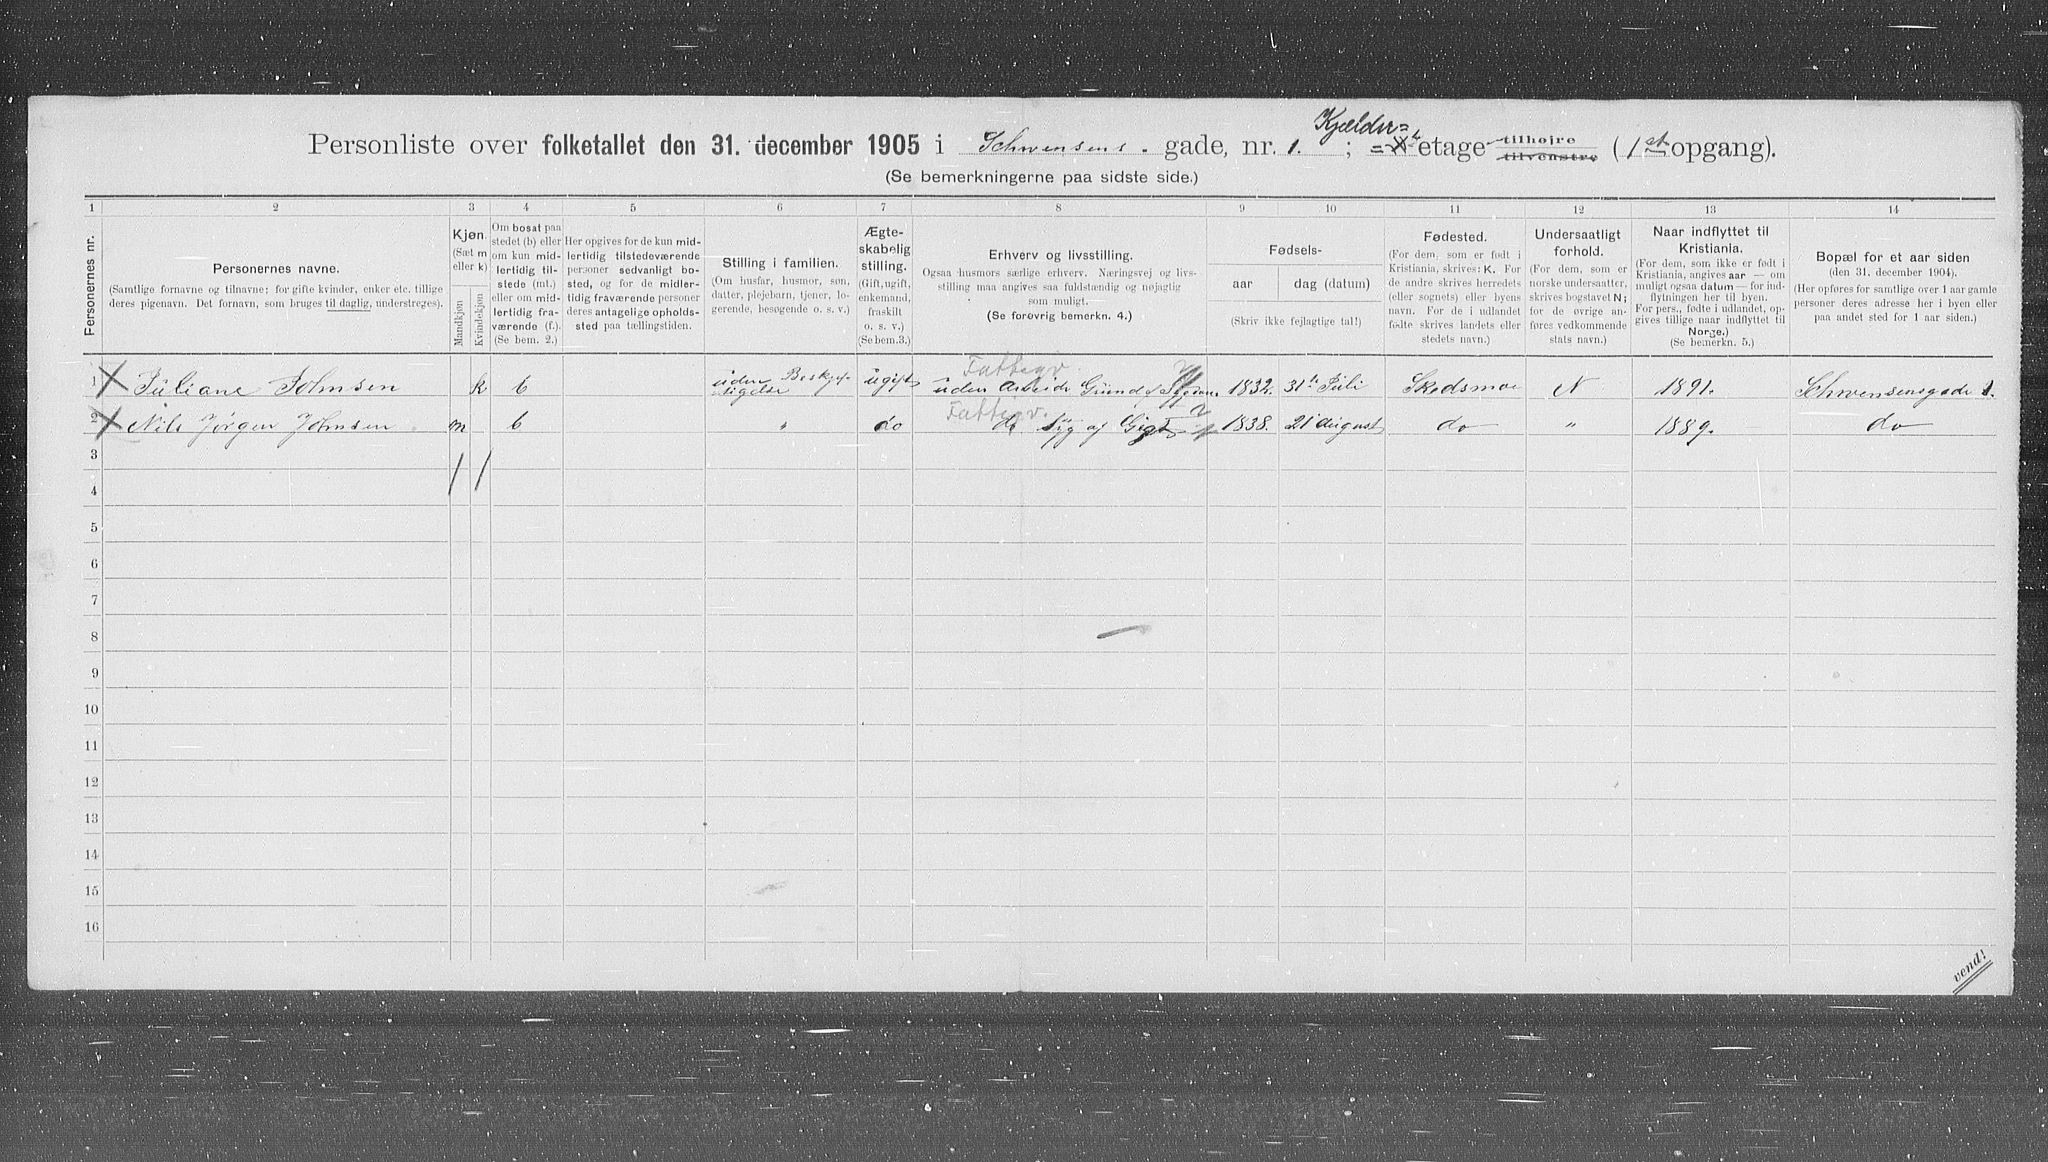 Kjælder=
Personliste over folketallet den 31. december 1905 i Schwensens gade, nr. 1. ; etage tilhøjre tilvenstre (1st opgang).
(Se bemerkningerne paa sidste side.)
1 2 3 4 5 6 7 8 9 10 11 12 13 14
Personernes nr.
Personernes navne.
(Samtlige fornavne og tilnavne; for gifte kvinder, enker etc. tillige
deres pigenavn. Det fornavn, som bruges til daglig, understreges).
Kjøn.
(Sæt m
eller k)
Mandkjøn
Kvindekjøn
Om bosat paa
stedet (b) eller
om kun mid-
lertidig til-
stede (mt.)
eller om mid-
lertidig fra-
værende (f.).
(Se bem. 2.)
Her opgives for de kun mid-
lertidig tilstedeværende
personer sedvanligt bo-
sted, og for de midler-
tidig fraværende personer
deres antagelige opholds-
sted paa tællingstiden.
Stilling i familien.
(Om husfar, husmor, søn,
datter, plejebarn, tjener, lo-
gerende, besøgende o. s. v.)
Ægte-
skabelig
stilling.
(Gift, ugift,
enkemand,
fraskilt
o. s. v.)
(Se bem. 3.)
Erhverv og livsstilling.
Ogsaa husmors særlige erhverv. Næringsvej og livs-
stilling maa angives saa fuldstændig og nøjagtig
som muligt.
(Se forøvrig bemerkn. 4.)
Fødsels-
aar dag (datum)
(Skriv ikke fejlagtige tal!)
Fødested.
(For dem, som er født i
Kristiania, skrives: K. For
de andre skrives herredets
(eller sognets) eller byens
navn. For de i udlandet
fødte skrives landets eller
stedets navn.)
Undersaatligt
forhold.
(For dem, som er
norske undersaatter,
skrives bogstavet N;
for de øvrige an-
føres vedkommende
stats navn.)
Naar indflyttet til
Kristiania.
(For dem, som ikke er født i
Kristiania, angives aar — om
muligt ogsaa datum — for ind-
flytningen her til byen.
For pers., fødte i udlandet, op-
gives tillige naar indflyttet til
Norge.)
(Se bemerkn. 5.)
Bopæl for et aar siden
(den 31. december 1904).
(Her opføres for samtlige over 1 aar gamle
personer deres adresse her i byen eller
paa andet sted for 1 aar siden.)
1 Juliane Johnsen k b uden Beskjef-
tigelse ugift Fattigv. uden Arbeide Grund 1832. 31te Juli Skedsmo N 1891. Schwensensgade 1.
2 Nils Jørgen Johnsen m b " do Fattigv. do Syg af Gigt 1838. 21 August do " 1889. do
3
4
5
6
7
8
9
10
11
12
13
14
15
16
vend!